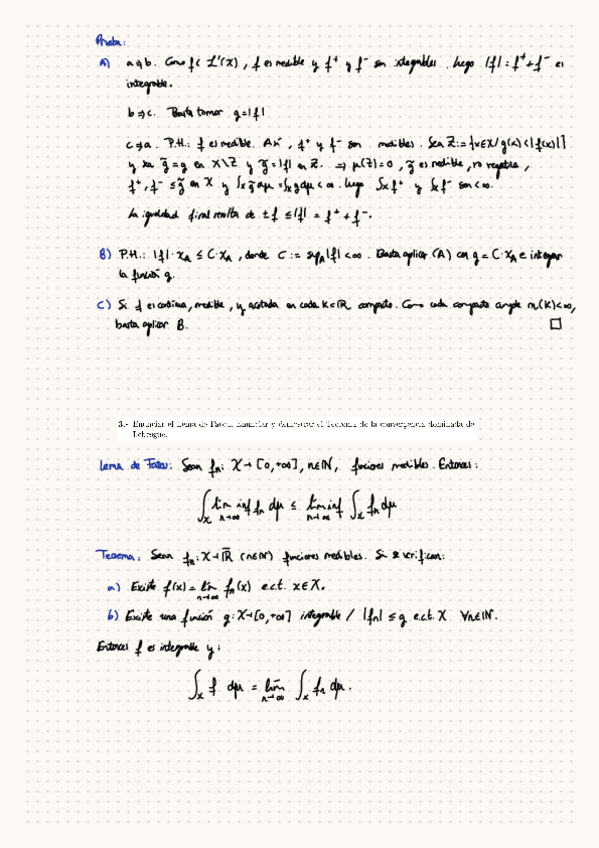 Prueba:
A) a⇒b. Como f∈ L¹(X), f es medible y f⁺ y f⁻ son integrables. Luego |f| = f⁺+f⁻ es
integrable.
b⇒c. Basta tomar g=|f|
c⇒a. P.H.: f es medible. Así, f⁺ y f⁻ son medibles. Sea Z:={x∈X/g(x)<|f(x)|}
y sea g̃=g en X\Z y g̃=|f| en Z. ⇒ μ(Z)=0, g̃ es medible, no negativa,
f⁺, f⁻ ≤ g̃ en X y ∫x g̃ dμ = ∫x g dμ < ∞. Luego ∫x f⁺ y ∫x f⁻ son <∞.
La igualdad final resulta de ±f ≤ |f| = f⁺+f⁻.
B) P.H.: |f|·χ_A ≤ C·χ_A, donde C := sup_A|f| < ∞. Basta aplicar (A) con g = C·χ_A e integrar
la función g.
C) Si f es continua, medible, y acotada en cada K⊂ℝ compacto. Como cada compacto cumple m(K)<∞,
basta aplicar B. □
3.- Enunciar el Lema de Fatou. Enunciar y demostrar el Teorema de la convergencia dominada de
Lebesgue.
Lema de Fatou: Sean fₙ: X→[0,+∞], n∈ℕ, funciones medibles. Entonces:
∫_X lim inf_{n→∞} fₙ dμ ≤ lim inf_{n→∞} ∫_X fₙ dμ
Teorema: Sean fₙ: X→ℝ̄ (n∈ℕ) funciones medibles. Si se verifican:
a) Existe f(x) = lim_{n→∞} fₙ(x) e.c.t. x∈X.
b) Existe una función g: X→[0,+∞] integrable / |fₙ| ≤ g e.c.t. X ∀n∈ℕ.
Entonces f es integrable y:
∫_X f dμ = lim_{n→∞} ∫_X fₙ dμ.